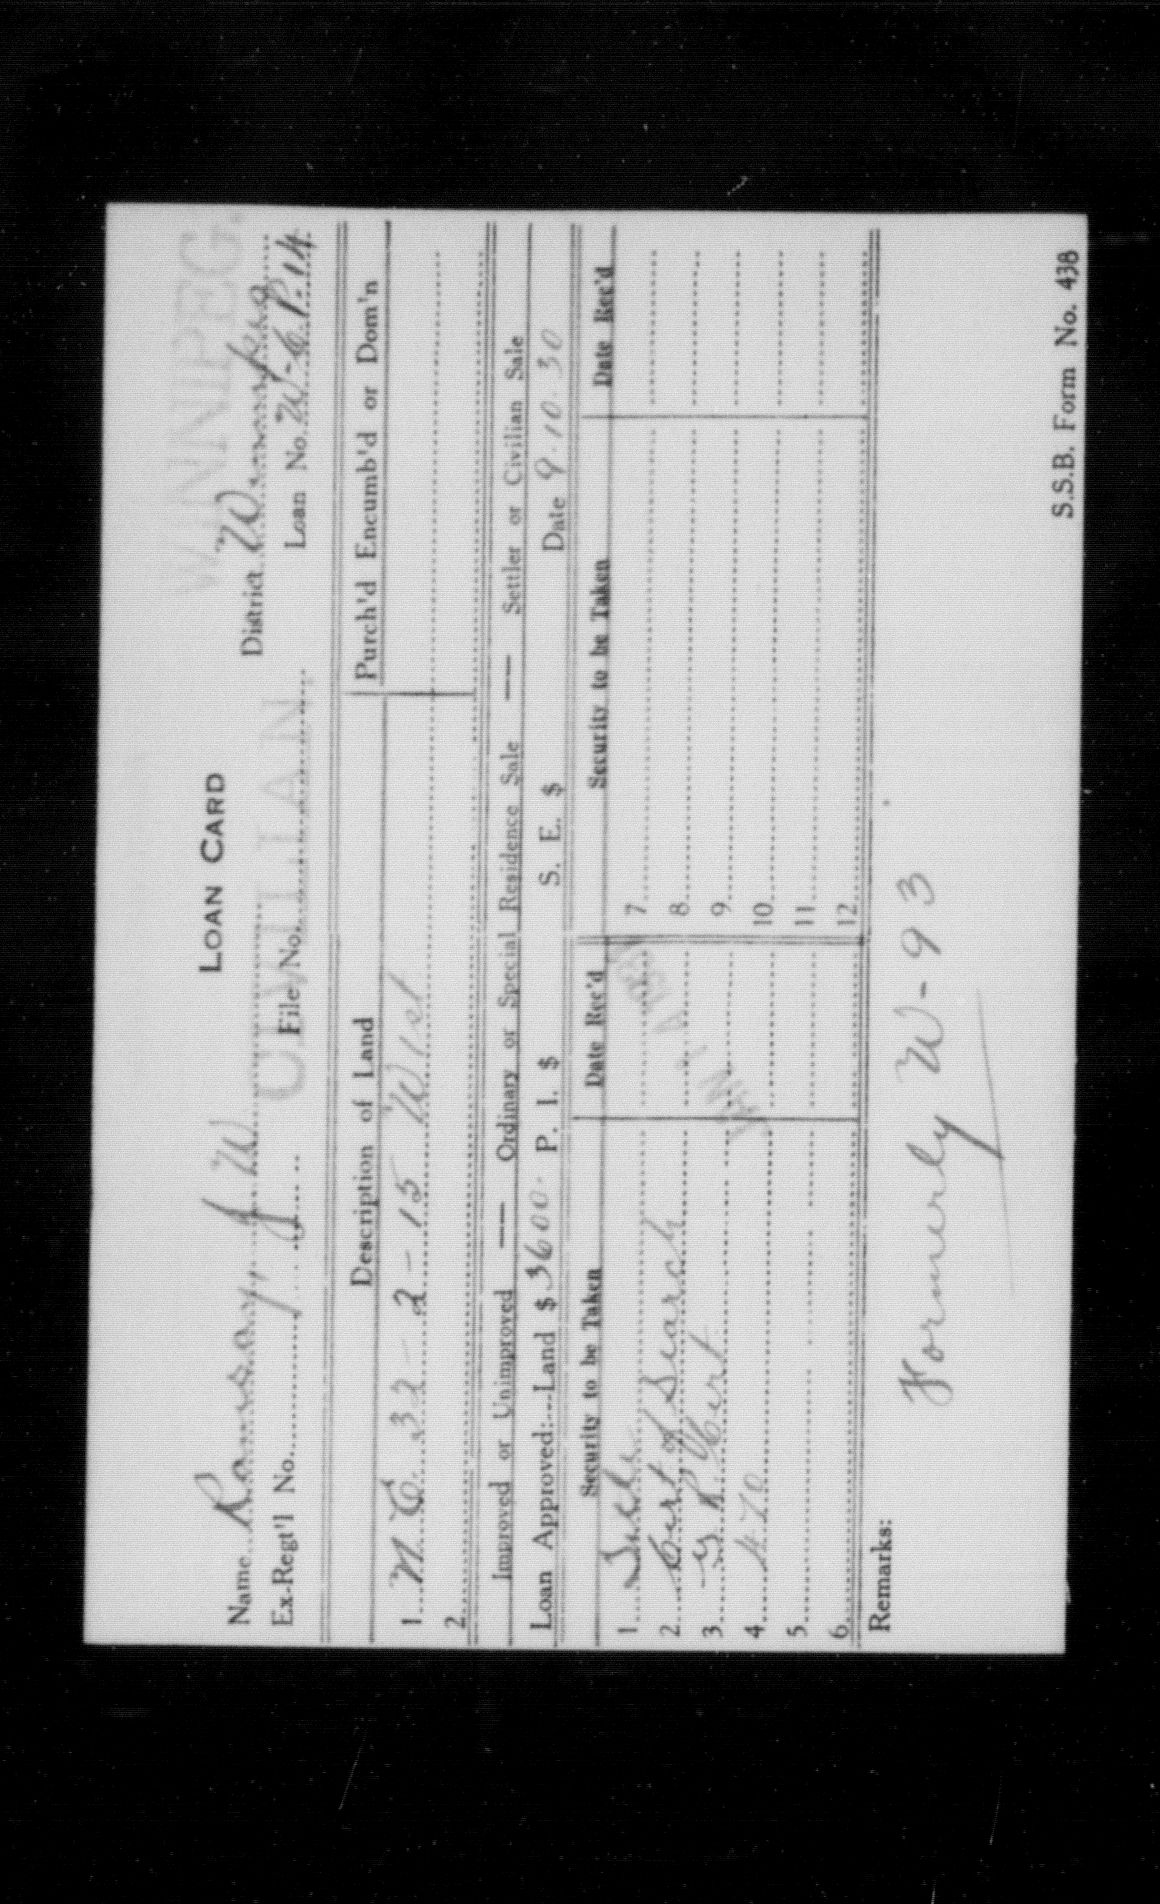 LOAN CARD
WINNIPEG.
Name Ramsay, J W District Winnipeg
CIVILIAN.
Ex-Reg't'l No. File No. Loan No. W-CP.14
Description of Land Purch'd Encumb'd or Dom'n
1 N.E. 32-2-15 W 1st
2
Improved or Unimproved — Ordinary or Special Residence Sale — Settler or Civilian Sale
Loan Approved:--Land $ 3600. P. I. $ S. E. $ Date 9.10.30
Security to be Taken Date Rec'd Security to be Taken Date Rec'd
1 7
2 Cert of Search 8
3 9
4 470 10
5 11
6 12
Remarks:
Formerly W-93
S.S.B. Form No. 438